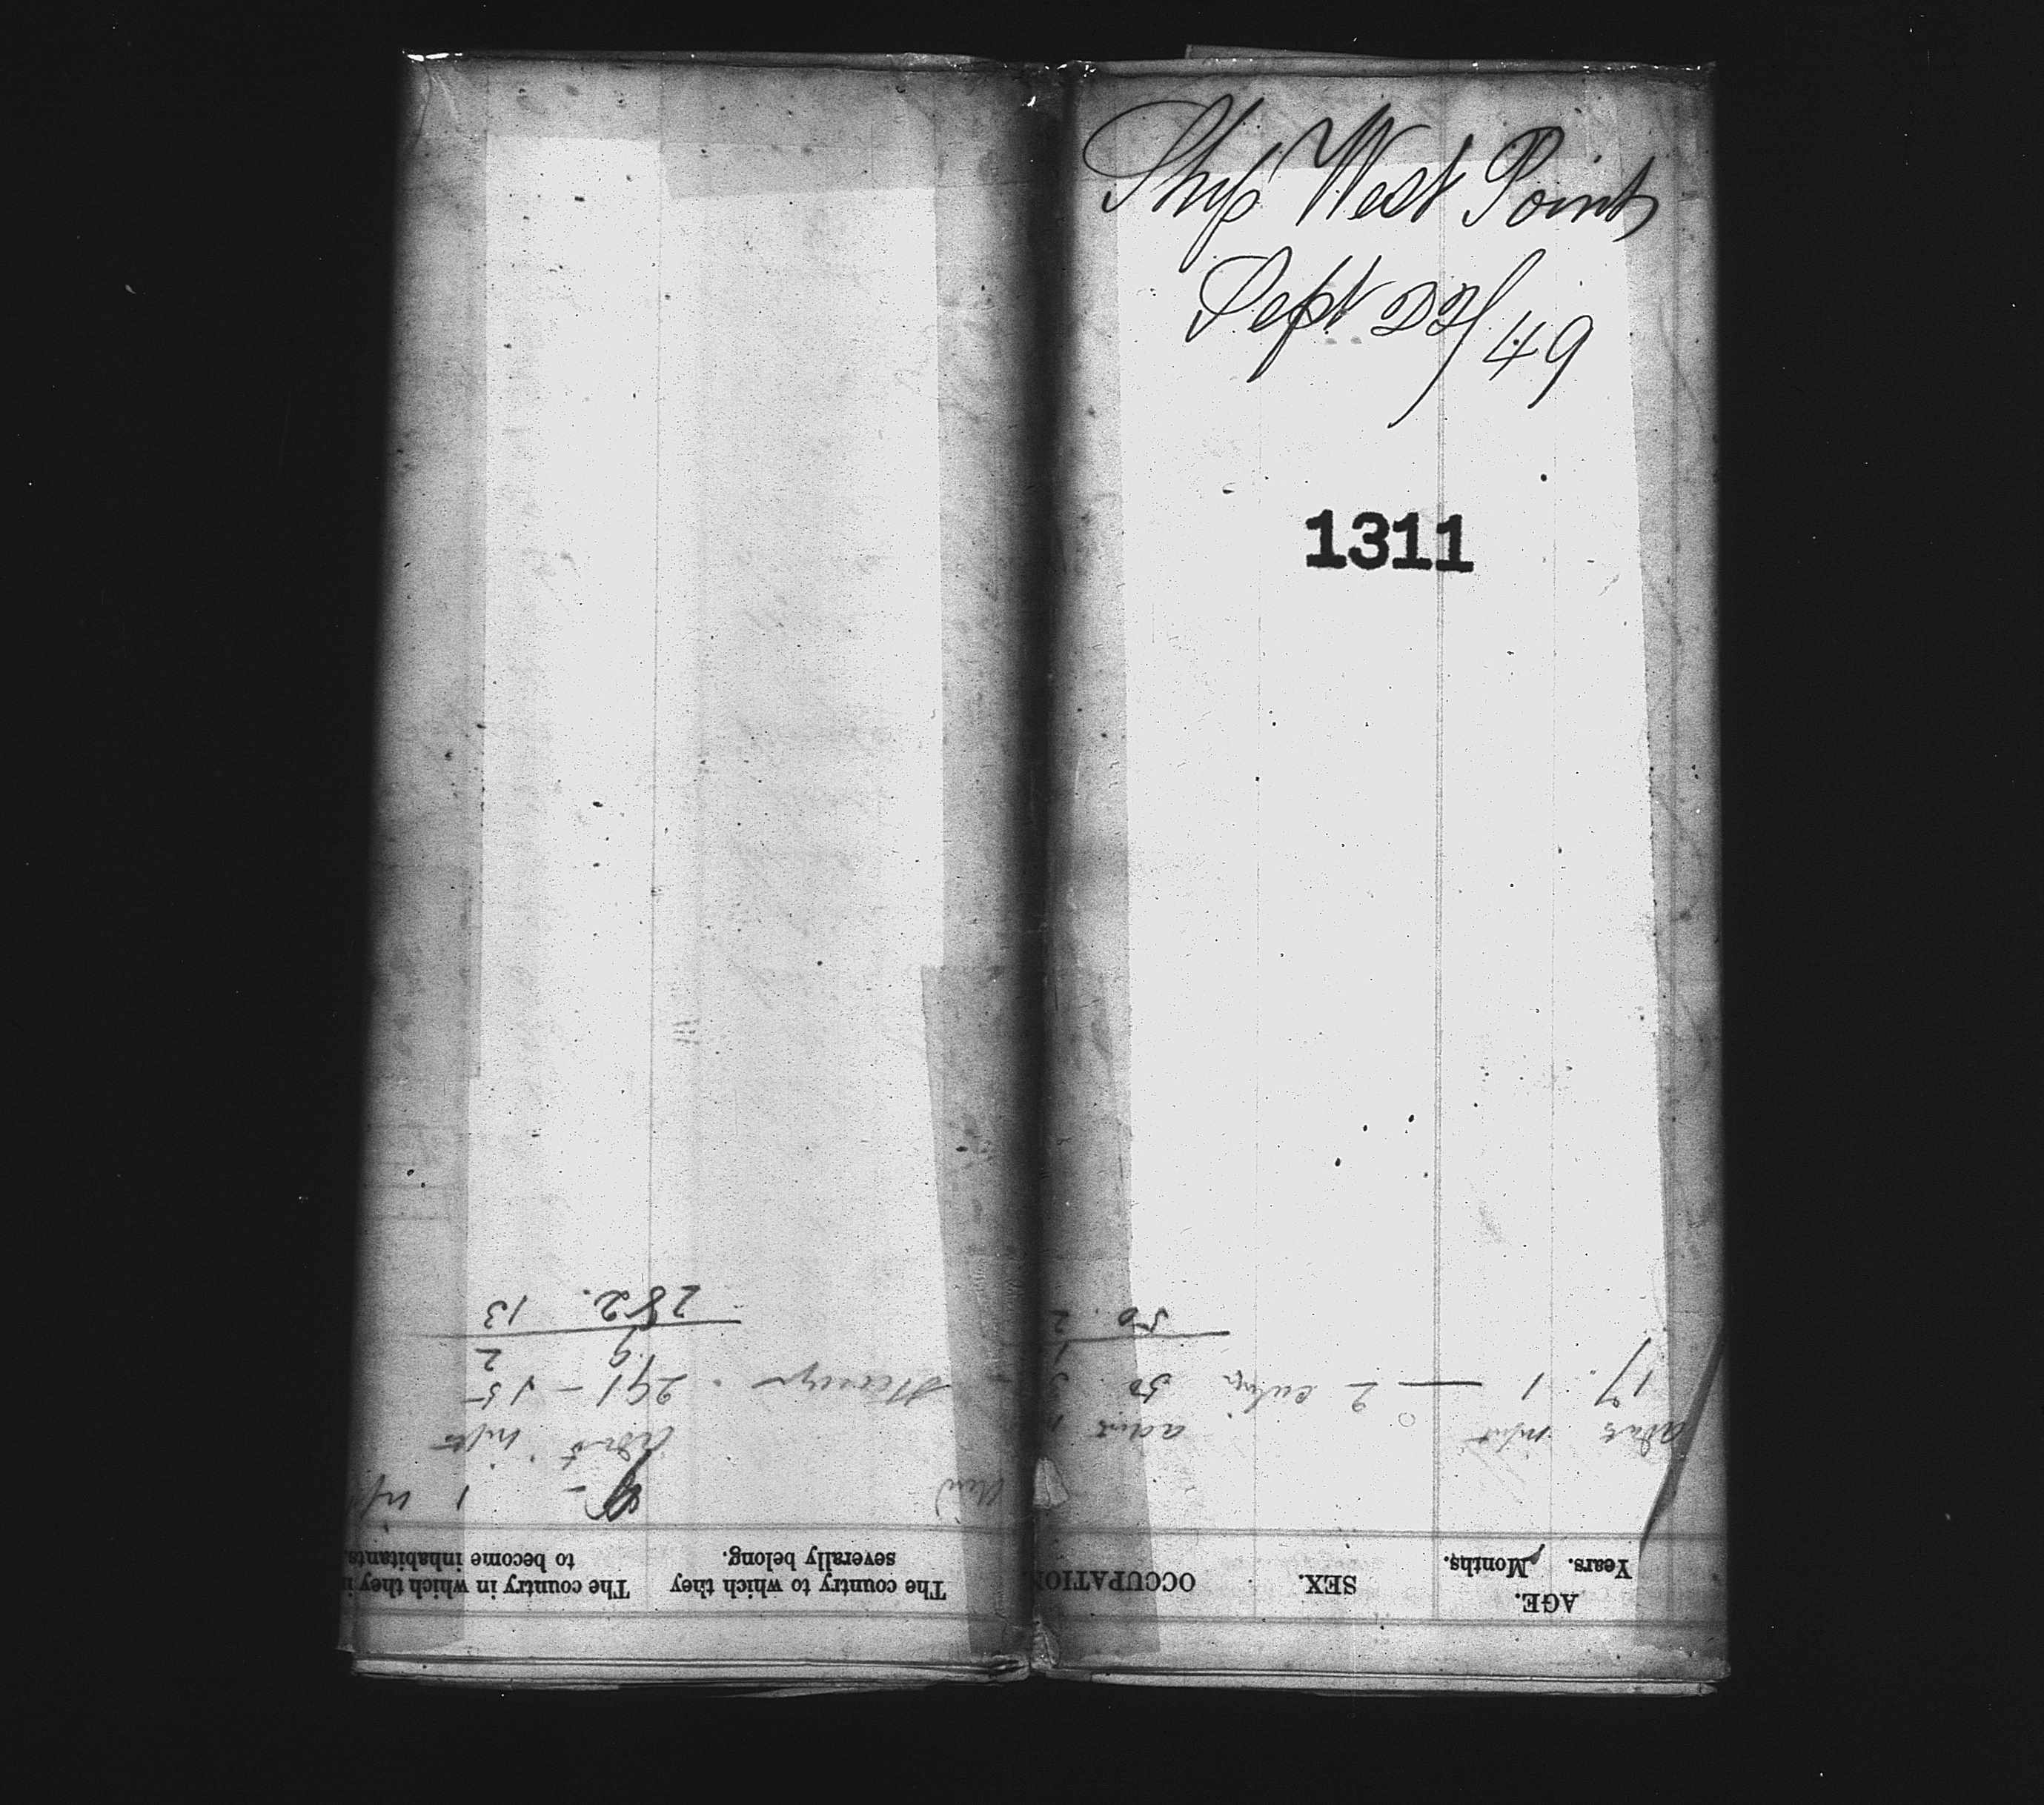 Ship West Point
Sept 22/49
1311
AGE.
Years. Months.
SEX.
OCCUPATION
The country to which they
severally belong.
The country in which they i
to become inhabitants.
9 - 1 inft
adult inft
17 . 1 — 2 cabin
adult
50 . 3
1
50 . 2
Steerage . 291 - 15
9 2
282. 13